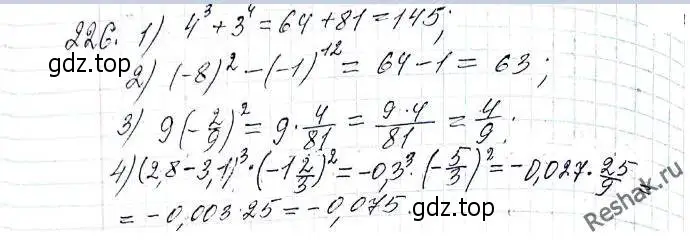 226. 1) 4³ + 3⁴ = 64 + 81 = 145;
gdz.top
2) (-8)² - (-1)¹² = 64 - 1 = 63;
3) 9(-2/9)² = 9 · 4/81 = 9·4/81 = 4/9;
4) (2,8 - 3,1)³ · (-1 2/3)² = -0,3³ · (-5/3)² = -0,027 · 25/9 =
= -0,003 · 25 = -0,075.
gdz.top
Reshak.ru